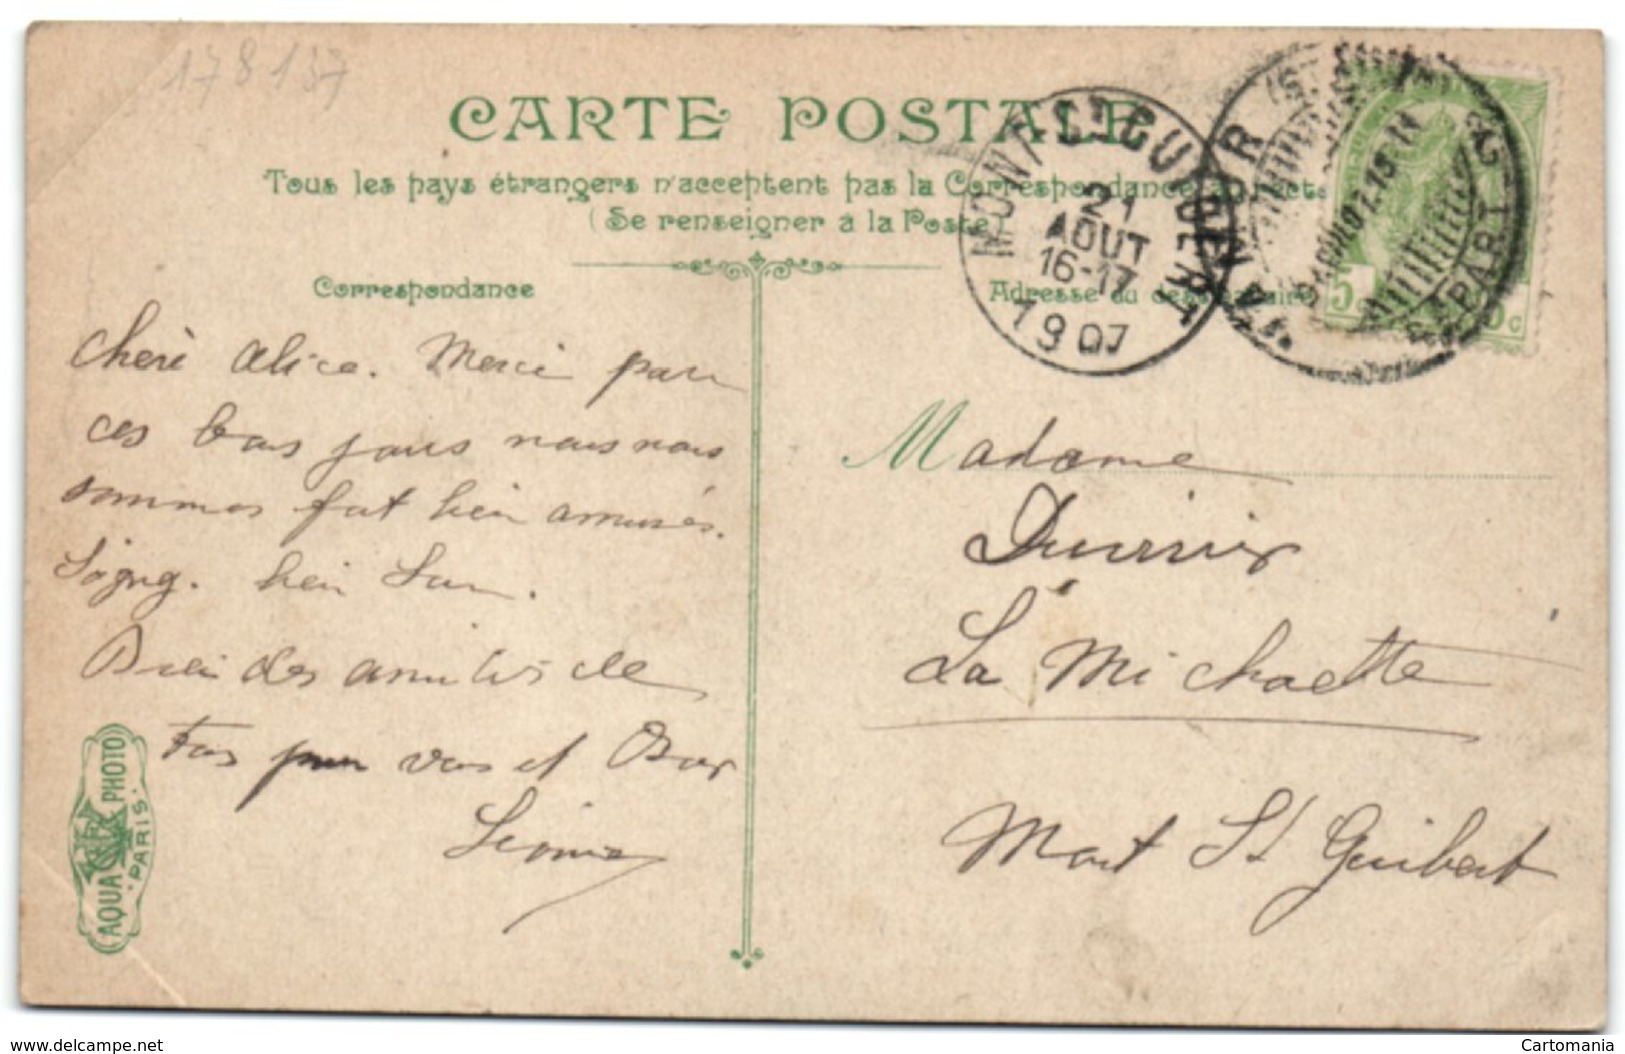 178137
CARTE POSTALE
Tous les pays étrangers n'acceptent pas la Correspondance au recto
(Se renseigner à la Poste
Correspondance
Adresse du destinataire
MONT-ST-GUIBERT
21
AOUT
16-17
1907
NAMUR (STATION)
DÉPART
5 c
Cheré Alice. Merci pour
ces bons jours nous nous
sommes fort bien amusés.
bien
Bien des amitiés de
Fos pour vous et Oscar
Madame
La Michaette
Mont St Guibert
AQUA PHOTO
PARIS
www.delcampe.net
Cartomania